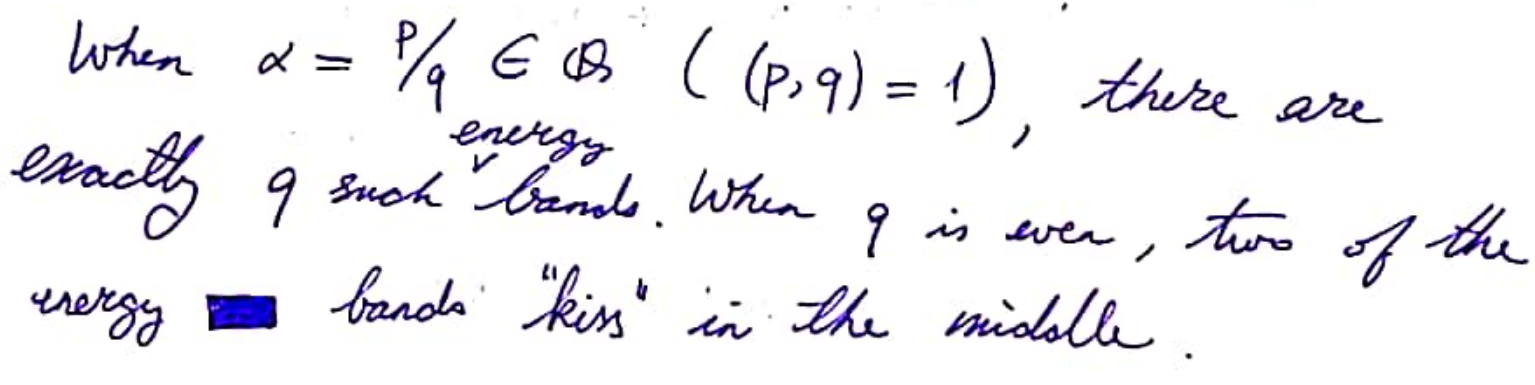 When α = p/q ∈ ℚ ( (p,q) = 1), there are
exactly q such energy bands. When q is even, two of the
energy bands "kiss" in the middle.